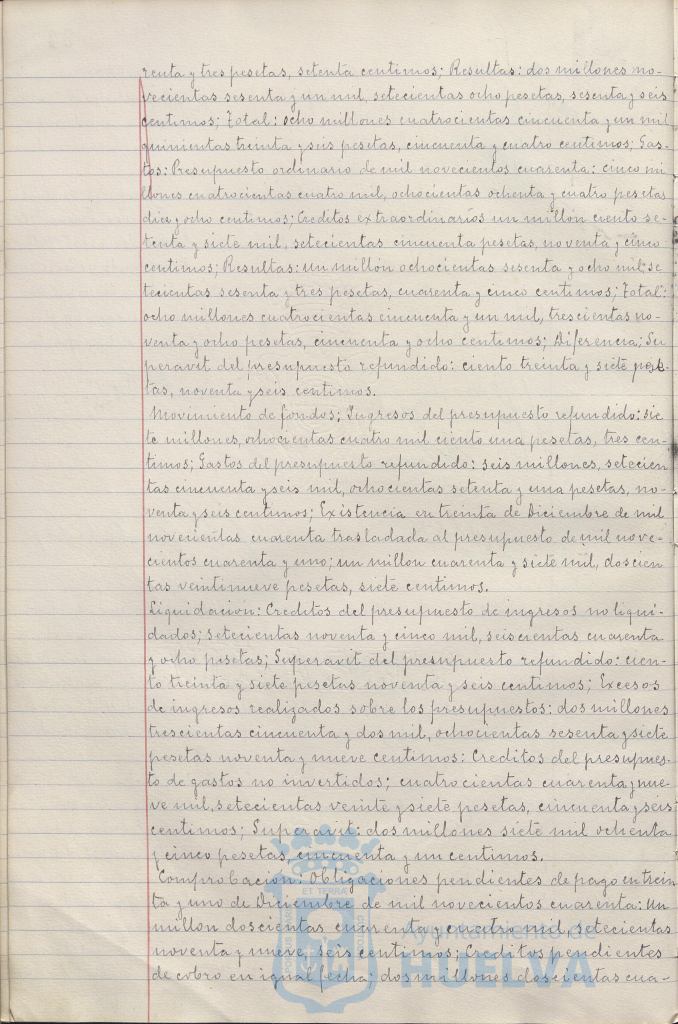 renta y tres pesetas, setenta centimos; Resultas: dos millones no-
vecientas sesenta y un mil, setecientas ocho pesetas, sesenta y seis
centimos; Total: ocho millones cuatrocientas cincuenta y un mil
quinientas treinta y seis pesetas, cincuenta y cuatro centimos; Gas-
tos: Presupuesto ordinario de mil novecientos cuarenta: cinco mi
llones cuatrocientas cuatro mil, ochocientas ochenta y cuatro pesetas
diez y ocho centimos; Creditos extraordinarios un millón ciento se-
tenta y siete mil, setecientas cincuenta pesetas, noventa y cinco
centimos; Resultas: un millón ochocientas sesenta y ocho mil se
tecientas sesenta y tres pesetas, cuarenta y cinco centimos; Total:
ocho millones cuatrocientas cincuenta y un mil, trescientas no-
venta y ocho pesetas, cincuenta y ocho centimos; Diferencia; Su
peravit del presupuesto refundido: ciento treinta y siete pese-
tas, noventa y seis centimos.
Movimiento de fondos; Ingresos del presupuesto refundido: sie
te millones, ochocientas cuatro mil ciento una pesetas, tres cen-
timos; Gastos del presupuesto refundido: seis millones, setecien
tas cincuenta y seis mil, ochocientas setenta y una pesetas, no-
venta y seis centimos; Existencia en treinta de Diciembre de mil
novecientas cuarenta trasladada al presupuesto de mil nove-
cientos cuarenta y uno; un millon cuarenta y siete mil, doscien
tas veintinueve pesetas, siete centimos.
Liquidación: Creditos del presupuesto de ingresos no liqui-
dados; setecientas noventa y cinco mil, seiscientas cuarenta
y ocho pesetas; Superavit del presupuesto refundido: cien-
to treinta y siete pesetas noventa y seis centimos; Excesos
de ingresos realizados sobre los presupuestos: dos millones
trescientas cincuenta y dos mil, ochocientas sesenta y siete
pesetas noventa y nueve centimos: Creditos del presupues-
to de gastos no invertidos; cuatrocientas cuarenta y nue-
ve mil, setecientas veinte y siete pesetas, cincuenta y seis
centimos; Superavit: dos millones siete mil ochenta
y cinco pesetas, cincuenta y un centimos.
Comprobación: Obligaciones pendientes de pago en trein
ta y uno de Diciembre de mil novecientos cuarenta: Un
millon doscientas cuarenta y cuatro mil setecientas
noventa y nueve, seis centimos; Creditos pendientes
de cobro en igual fecha: dos millones doscientas cua-
Ayuntamiento de
HUELVA